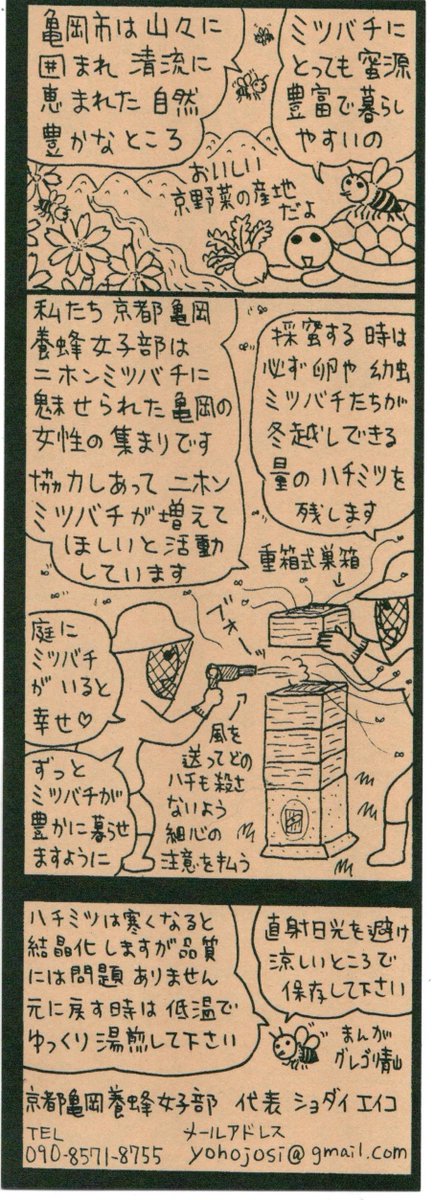 ミツバチに
とっても 蜜源
豊富で暮らし
やすいの
亀岡市は山々に
囲まれ 清流に
恵まれた 自然
豊かなところ
おいしい
京野菜の産地
だよ
採蜜する時は
必ず 卵や 幼虫
ミツバチたちが
冬越しできる
量の ハチミツを
残します
私たち 京都亀岡
養蜂女子部は
ニホンミツバチに
魅せられた亀岡の
女性の集まりです
協力しあって ニホン
ミツバチが増えて
ほしいと活動
しています
重箱式巣箱
ブォーッ
庭に
ミツバチ
が いると
幸せ♡
風を
送ってどの
ハチも殺さ
ないよう
細心の
注意を払う
ずっと
ミツバチが
豊かに暮らせ
ますように
直射日光を避け
涼しいところで
保存して下さい
ハチミツは寒くなると
結晶化しますが品質
には問題ありません
元に戻す時は低温で
ゆっくり湯煎して下さい
まんが
グレゴリ青山
京都亀岡養蜂女子部 代表 ショダイ エイコ
TEL メールアドレス
090-8571-8755 yohojosi@gmail.com